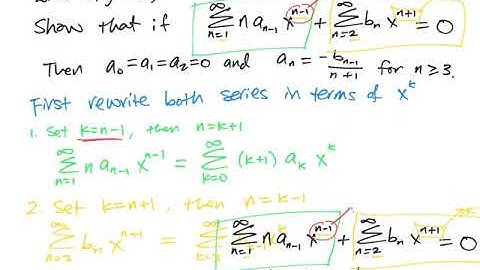 Show that if \sum_{n=1}^{\infty} n a_{n-1} x^{n-1} + \sum_{n=2}^{\infty} b_n x^{n+1} = 0
Then a_0=a_1=a_2=0 and a_n = -\frac{b_{n-1}}{n+1} for n ≥ 3.
First rewrite both series in terms of x^k
1. Set k=n-1, then n=k+1
\sum_{n=1}^{\infty} n a_{n-1} x^{n-1} = \sum_{k=0}^{\infty} (k+1) a_k x^k
2. Set k=n+1, then n=k-1
\sum_{n=2}^{\infty} b_n x^{n+1} = \sum_{n=1}^{\infty} n a_{n-1} x^{n-1} + \sum_{n=2}^{\infty} b_n x^{n+1} = 0